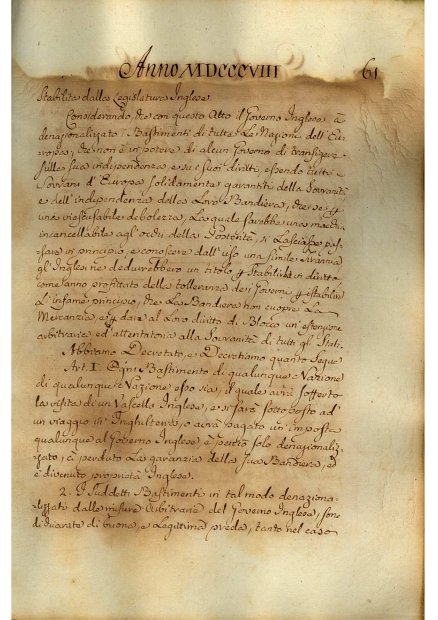 Anno MDCCCVIII 61
Stabilita dalla Legislatura Inglese.
Considerando, che con questo Atto il Governo Inglese à
denazionalizzato i Bastimenti di tutte le Nazioni dell' Eu-
ropa, che non è in potere di alcun Governo di transigere
sulla sua indipendenza, e su i suoi diritti, essendo tutti i
Sovrani d' Europa solidamente garanti della Sovranità
e dell' indipendenza della loro Bandiera, che se p
una inescusabile debolezza, la quale sarebbe una macchia
incancellabile agl' occhi della Posterità, si lasciasse pas-
sare in principio, e consacrare dall' uso una simile tirannia
gl' Inglesi ne dedurrebbero un titolo p stabilirla in diritto
come anno profittato della tolleranza de' Governi p istabilire
l' infame principio, che la Bandiera non cuopre la
Mercanzia, e p dare al loro diritto di Blocco un estensione
arbitraria, ed attentatoria alla Sovranità di tutti gli Stati.
Abbiamo Decretato, e Decretiamo quanto segue
Art. I. Ogni Bastimento di qualunque Nazione
di qualunque Nazione esso sia, il quale avrà sofferto
la visita di un Vascello Inglese, o si sarà sottoposto ad
un viaggio in Inghilterra, o avrà pagato un imposta
qualunque al Governo Inglese è perciò solo denazionaliz-
zato, à perduto la garanzia della sua Bandiera, ed
è divenuto proprietà Inglese.
2. I suddetti Bastimenti in tal modo denaziona-
lizzati dalle misure arbitrarie del Governo Inglese, sono
dichiarati di buona, e legittima preda, tanto nel caso